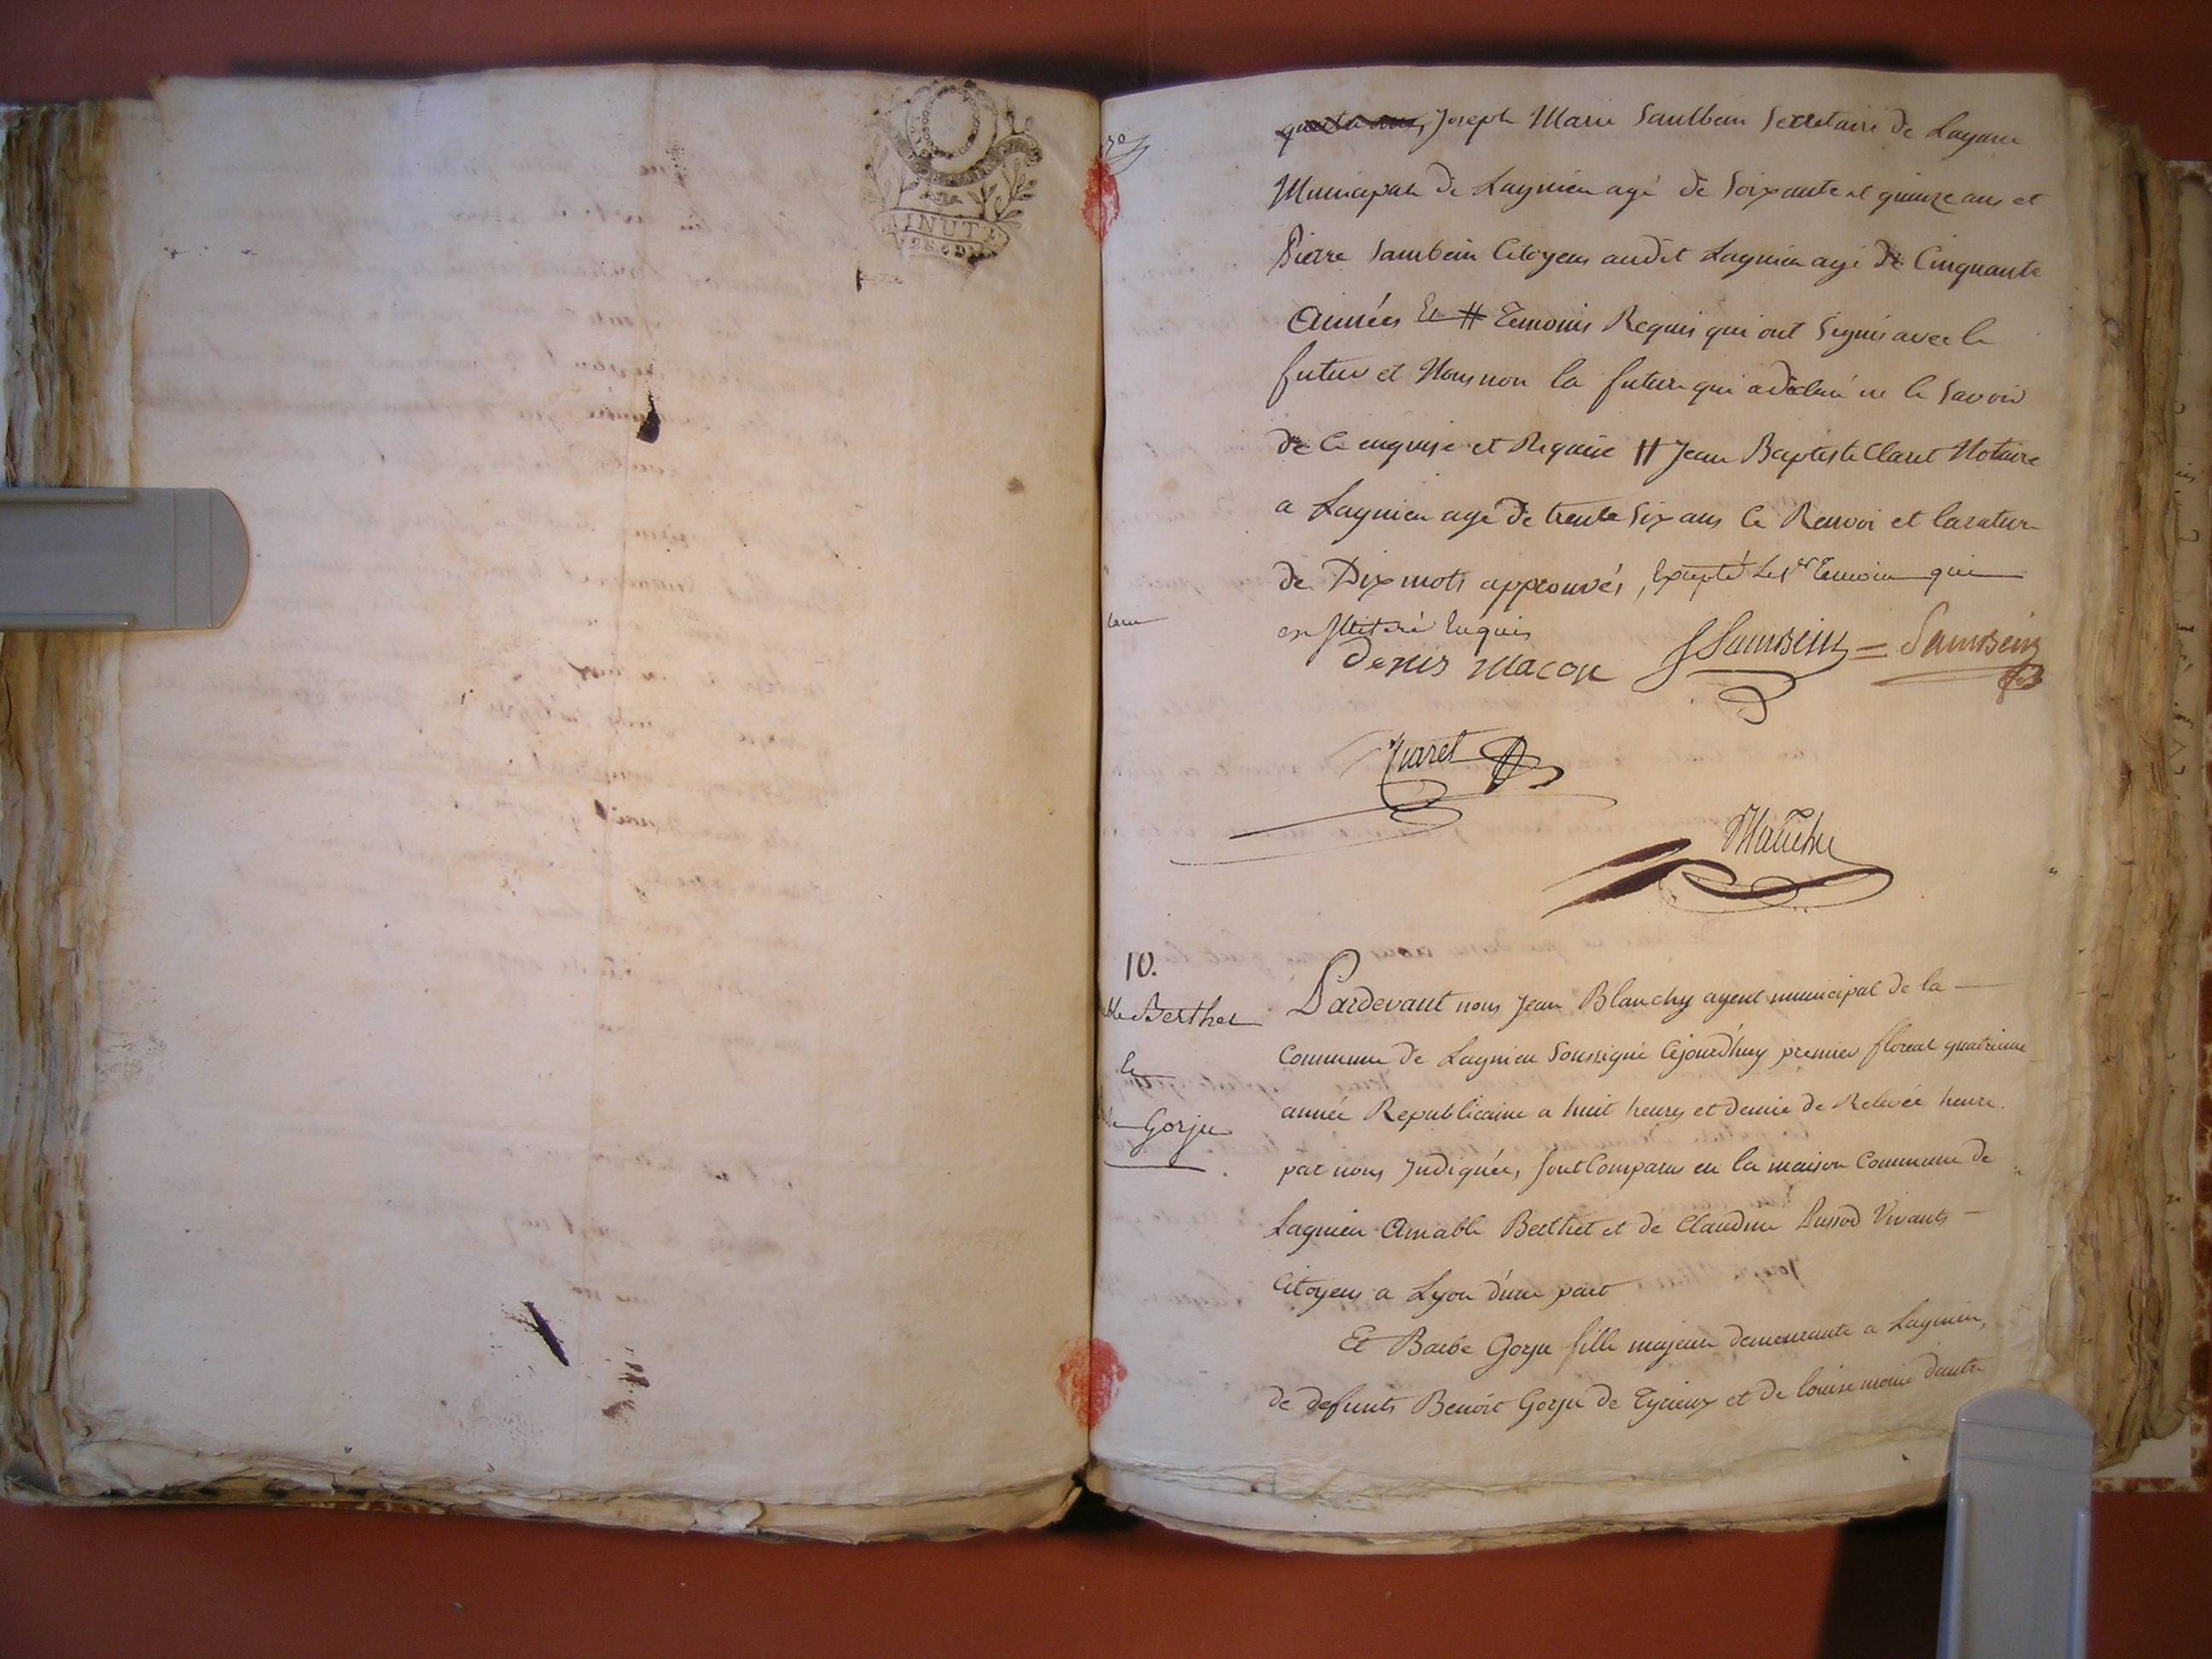 MINUTE
Joseph Marie Saulbein Secretaire de Lagane
Municipale de Lagnieu agé de Soixante et quinze ans et
Pierre Sambein Citoyens audit Lagnieu agé de Cinquante
Années Et # Temoins Requis qui ont Signés avec le
futur et Nous non la future qui a declaré ne le Savoir
de ce enquise et Requise # Jean Baptiste Claret Notaire
a Lagnieu agé de trente Six ans le Renvoi et la rature
de Dix mots approuvés, Excepté le 1er Temoin qui
est illitéré Enquis
denis macon Sambein = Sambein
10.
Berthet
Et
Gorju
Pardevant nous Jean Blanchy agent municipal de la
Commune de Lagnieu Soussigné Cejourd'huy premier floreal quatrieme
année Republicaine a huit heures et demie de Relevée heure
par nous Indiquée, Sont Comparus en la maison Commune de
Lagnieu Amable Berthet et de Claudine Pussod Vivants
Citoyens a Lyon d'une part
Et Barbe Gorju fille majeure demeurante a Lagnieu,
de defunts Benoit Gorju de Tyrieux et de louise moine dautre